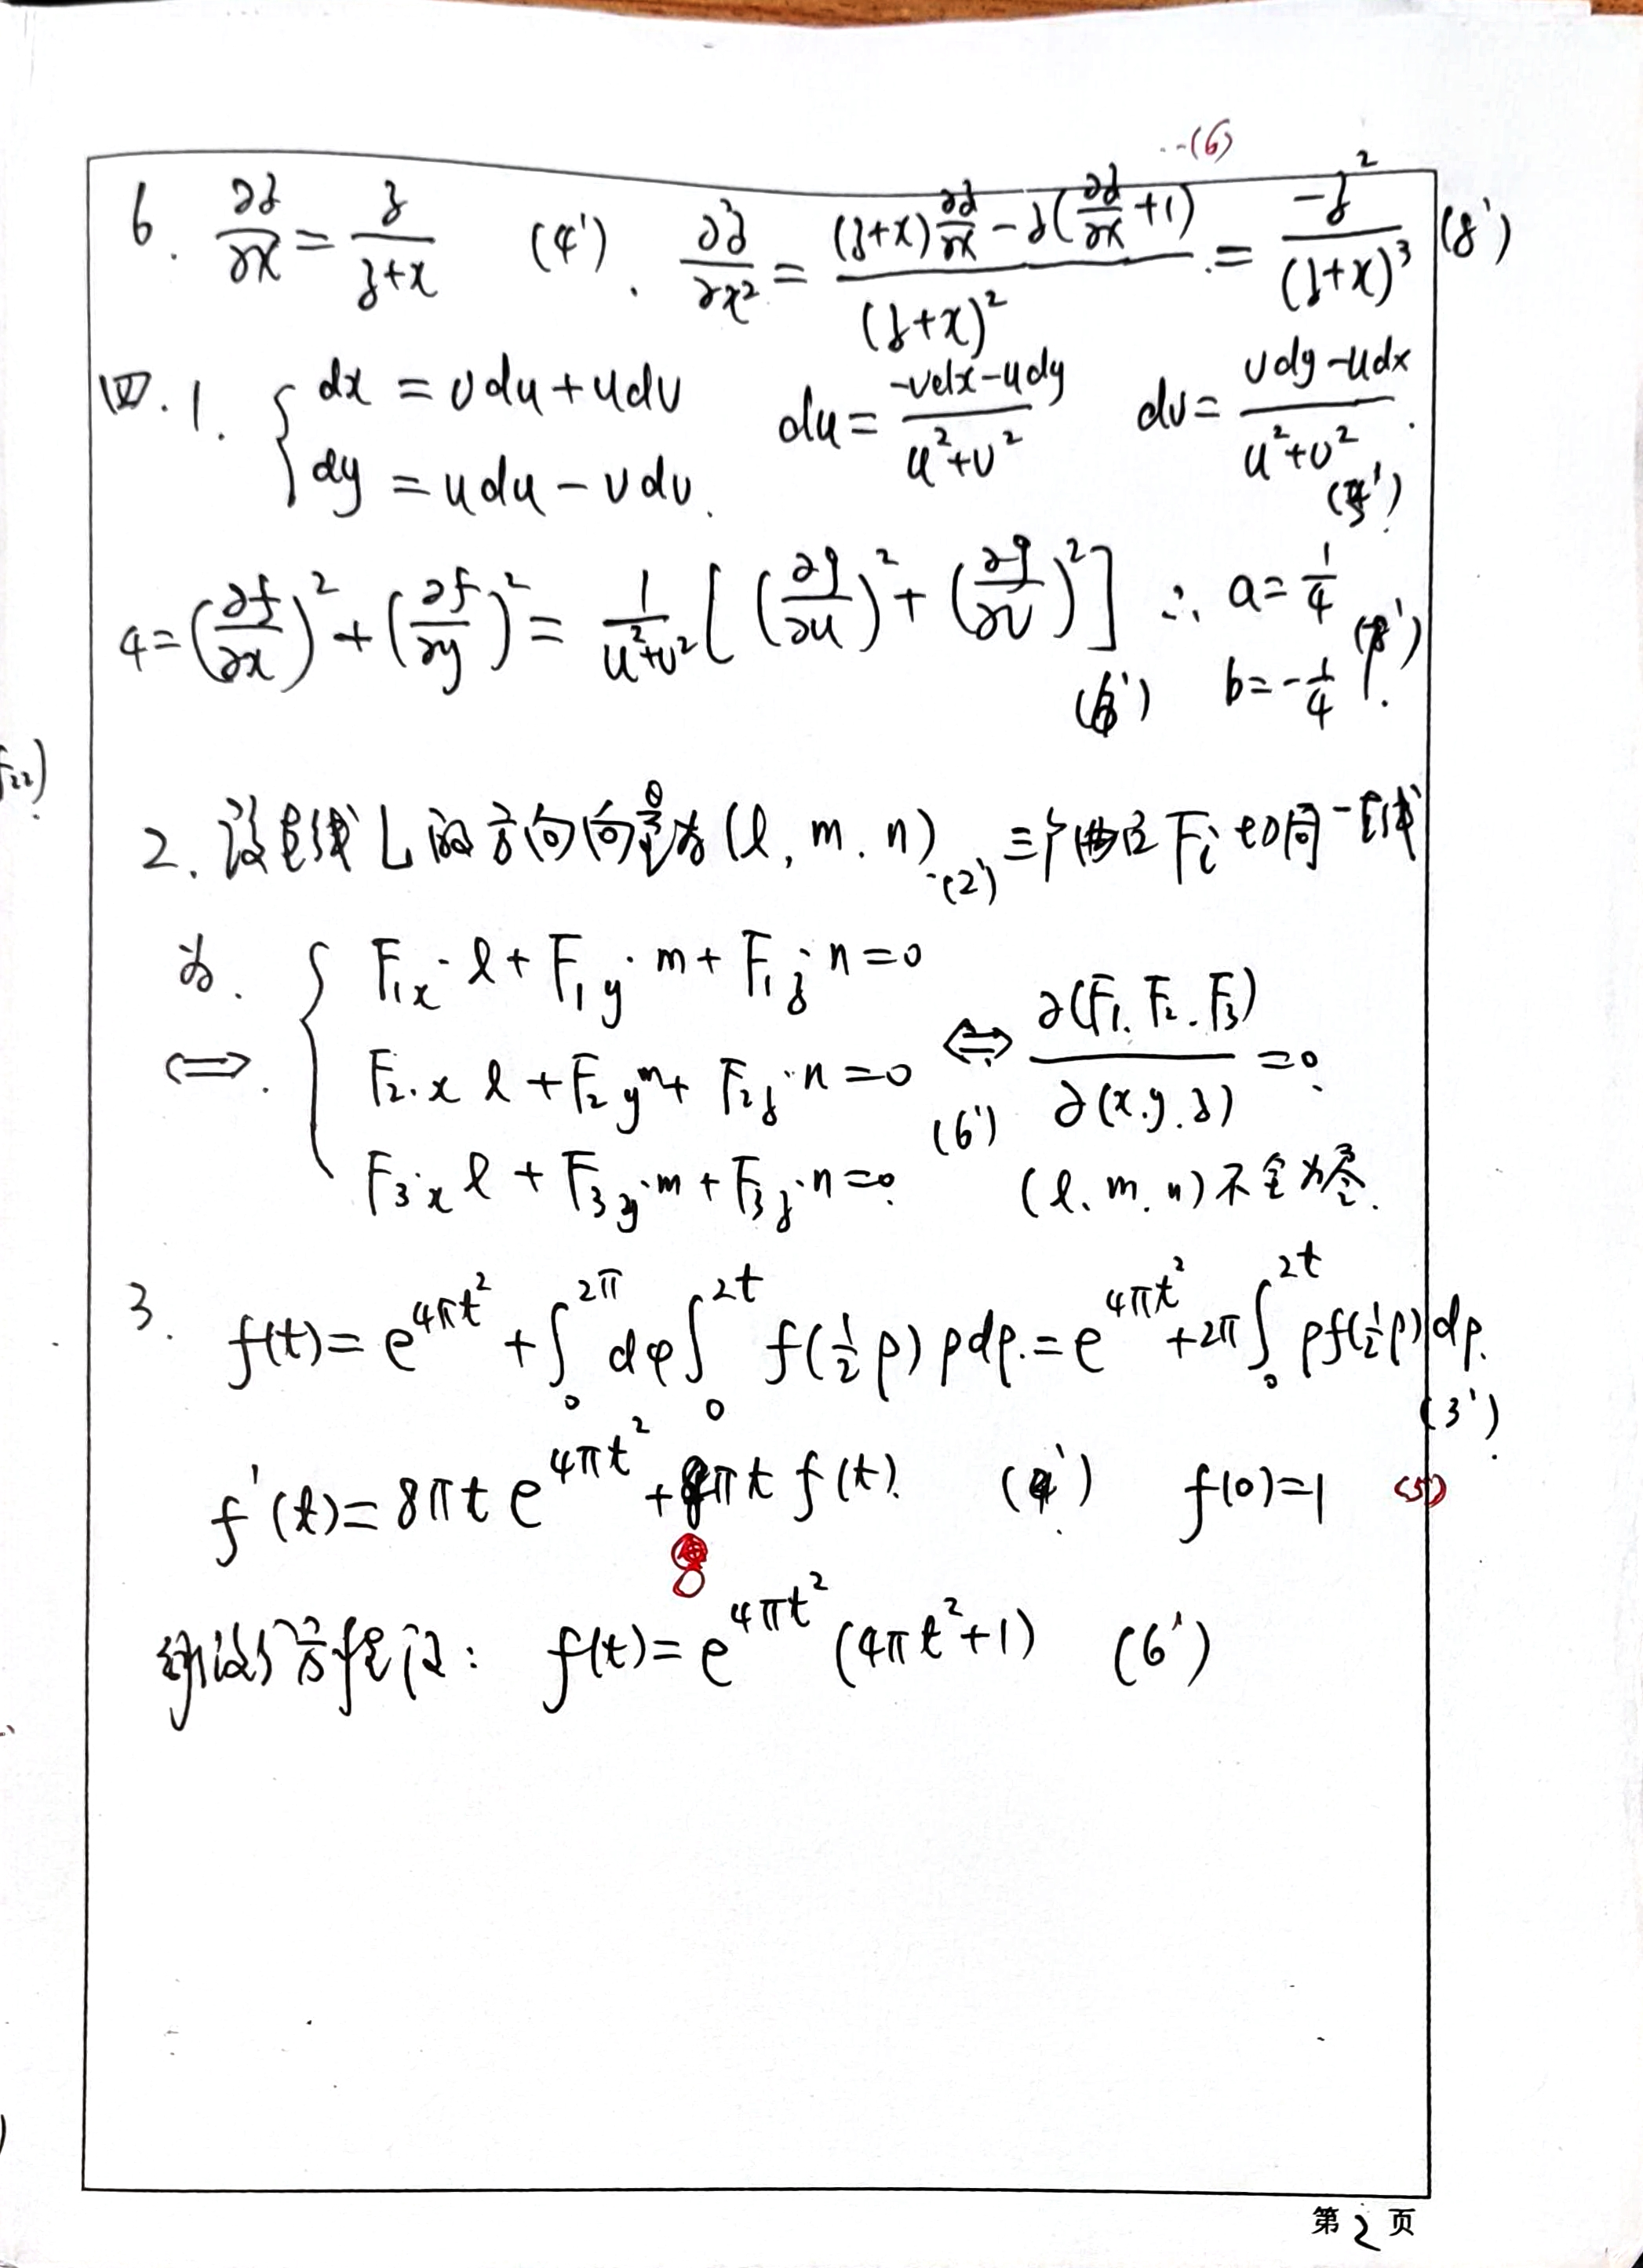 ...(6)
6. ∂z/∂x = z/(z+x) (4') . ∂²z/∂x² = ((z+x)∂z/∂x - z(∂z/∂x+1))/(z+x)² = -z²/(z+x)³ (8')
四. 1. { dx = vdu + udv du = (-vdx-udy)/(u²+v²) dv = (vdy-udx)/(u²+v²) .
dy = udu - vdv.
4 = (∂f/∂x)² + (∂f/∂y)² = 1/(u²+v²) [ (∂g/∂u)² + (∂g/∂v)² ] ∴ a = 1/4
(6') b = -1/4 (8').
F22)
2. 设直线 L 的方向向量为 (l, m, n) ..(2') 三个曲面 Fi 切同一直线
为. { F1x·l + F1y·m + F1z·n = 0
⇔. F2·x l + F2y m + F2z·n = 0 ⇔ ∂(F1.F2.F3)/∂(x.y.z) = 0.
(6')
F3·x l + F3y·m + F3z·n = 0. (l. m. n) 不全为零.
3. f(t) = e^{4πt²} + ∫₀^{2π} dφ ∫₀^{2t} f(½ρ) ρdρ. = e^{4πt²} + 2π ∫₀^{2t} ρf(½ρ) dρ.
(3').
f'(t) = 8πt e^{4πt²} + 8πt f(t). (4'). f(0)=1 (5')
8
解微分方程得: f(t) = e^{4πt²} (4πt²+1) (6')
第 2 页